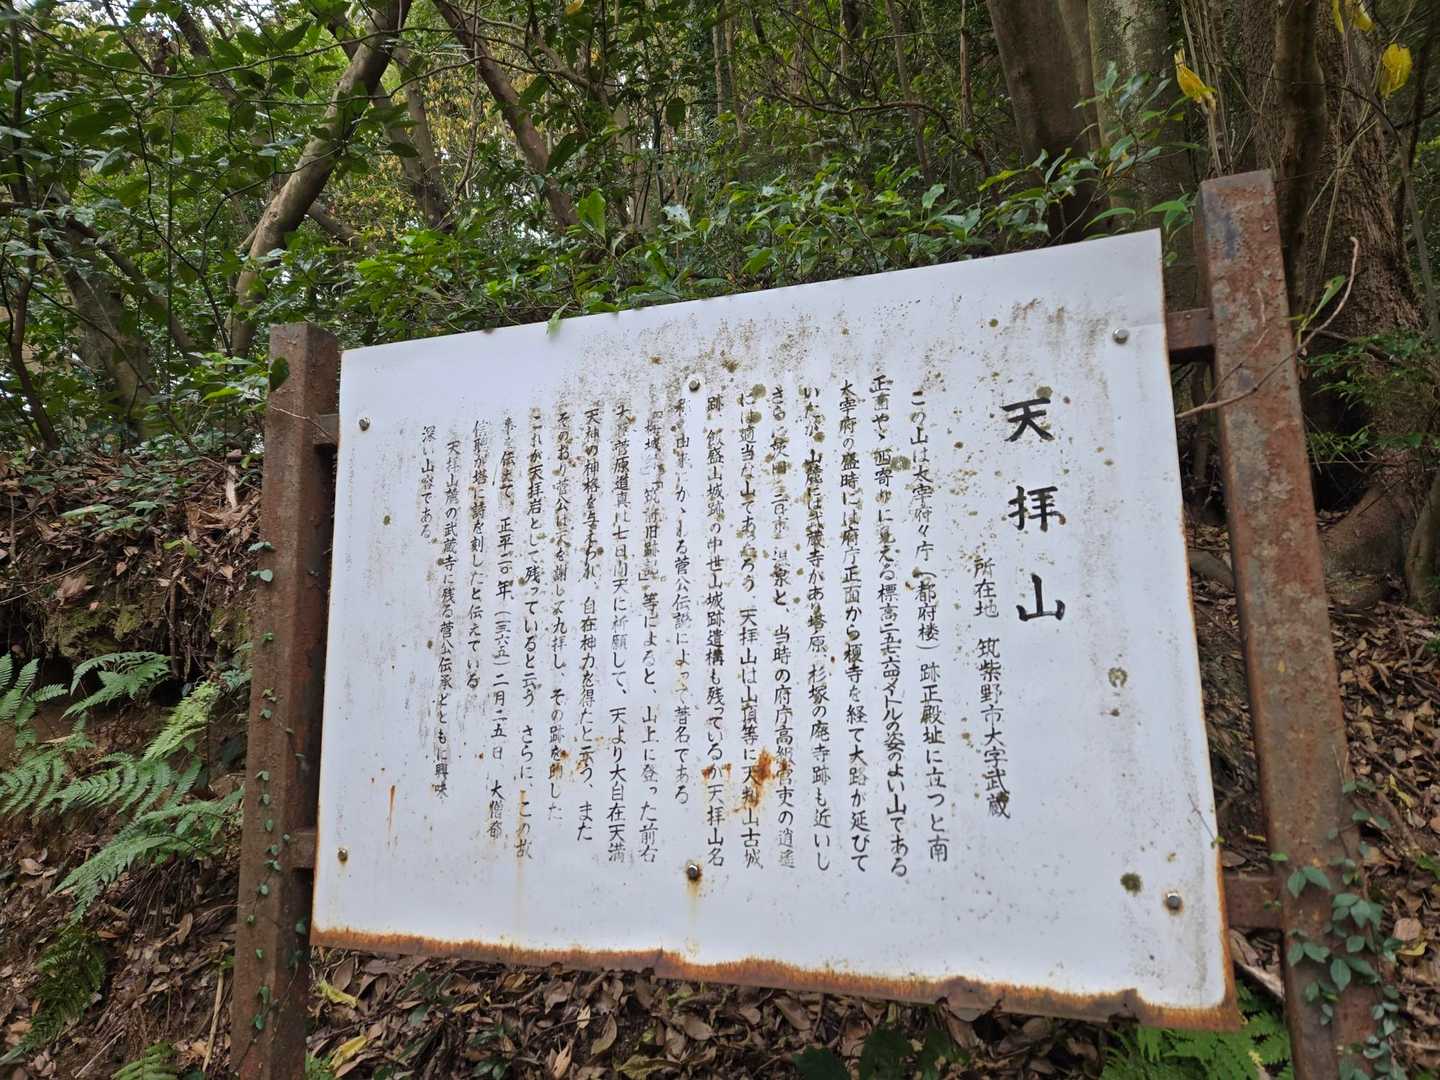 天拝山
所在地 筑紫野市大字武蔵
この山は太宰府々庁(都府楼)跡正殿址に立つと南
正面やゝ西寄りに見える標高二五七・六メートルの姿のよい山である
太宰府の盛時には府庁正面から榎寺を経て大路が延びて
いたが山麓には武蔵寺があり塔原、杉塚の廃寺跡も近いし
さらに 二日市温泉と、当時の府庁高級官吏の逍遥
には適当な山であったろう 天拝山は山頂等に天判山古城
跡 飯盛山城跡の中世山城跡遺構も残っているが天拝山名
称の由来にかゝわる菅公伝説によって著名である
「筑前旧跡記」等によると、山上に登った前右
大臣菅原道真は七日間天に祈願して、天より大自在天満
天神の神格を与えられ 自在神力を得たと云う、また
そのおり菅公は天を謝して九拝し、その跡を印した
これが天拝岩として残っていると云う さらに、この故
事を伝えて、正平二〇年、(一三六五)二月二五日 大僧都
信聡が塔に詩を刻したと伝えている
天拝山麓の武蔵寺に残る菅公伝承とともに興味
深い山容である